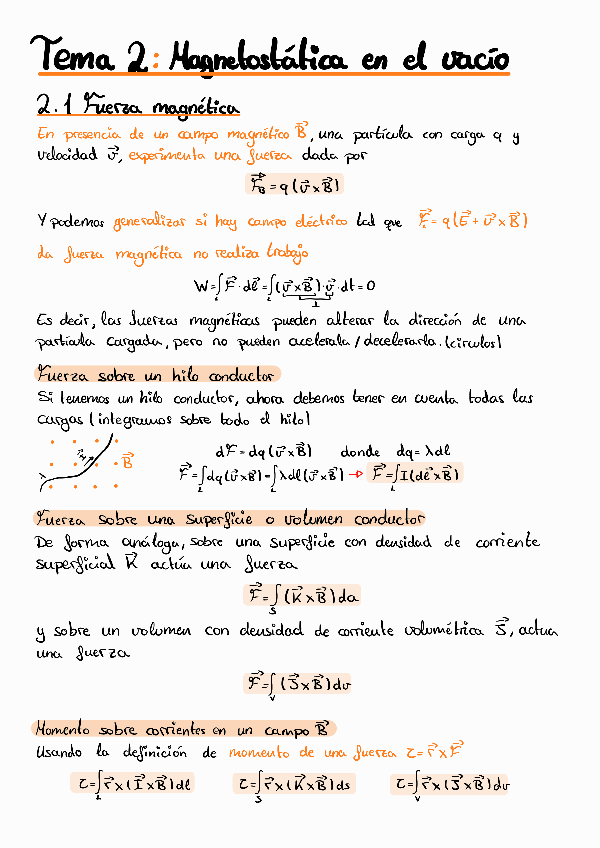 Tema 2: Magnetostática en el vacío
2.1 Fuerza magnética
En presencia de un campo magnético B⃗, una partícula con carga q y
velocidad v⃗, experimenta una fuerza dada por
F⃗_B = q(v⃗×B⃗)
Y podemos generalizar si hay campo eléctrico tal que F⃗ = q(E⃗ + v⃗×B⃗)
La fuerza magnética no realiza trabajo
W = ∫_L F⃗·dl⃗ = ∫_L (v⃗×B⃗)·v⃗·dt = 0
⊥
Es decir, las fuerzas magnéticas pueden alterar la dirección de una
partícula cargada, pero no pueden acelerarla/decelerarla. (círculos)
Fuerza sobre un hilo conductor
Si tenemos un hilo conductor, ahora debemos tener en cuenta todas las
cargas (integramos sobre todo el hilo)
B⃗
dF⃗ = dq(v⃗×B⃗) donde dq = λdl
F⃗ = ∫_L dq(v⃗×B⃗) = ∫_L λdl(v⃗×B⃗) → F⃗ = ∫_L I(dl⃗×B⃗)
Fuerza sobre una superficie o volumen conductor
De forma análoga, sobre una superficie con densidad de corriente
superficial K⃗ actúa una fuerza
F⃗ = ∫_S (K⃗×B⃗)da
y sobre un volumen con densidad de corriente volumétrica J⃗, actua
una fuerza
F⃗ = ∫_V (J⃗×B⃗)dv
Momento sobre corrientes en un campo B⃗
Usando la definición de momento de una fuerza τ = r⃗×F⃗
τ = ∫_L r⃗×(I⃗×B⃗)dl τ = ∫_S r⃗×(K⃗×B⃗)ds τ = ∫_V r⃗×(J⃗×B⃗)dv